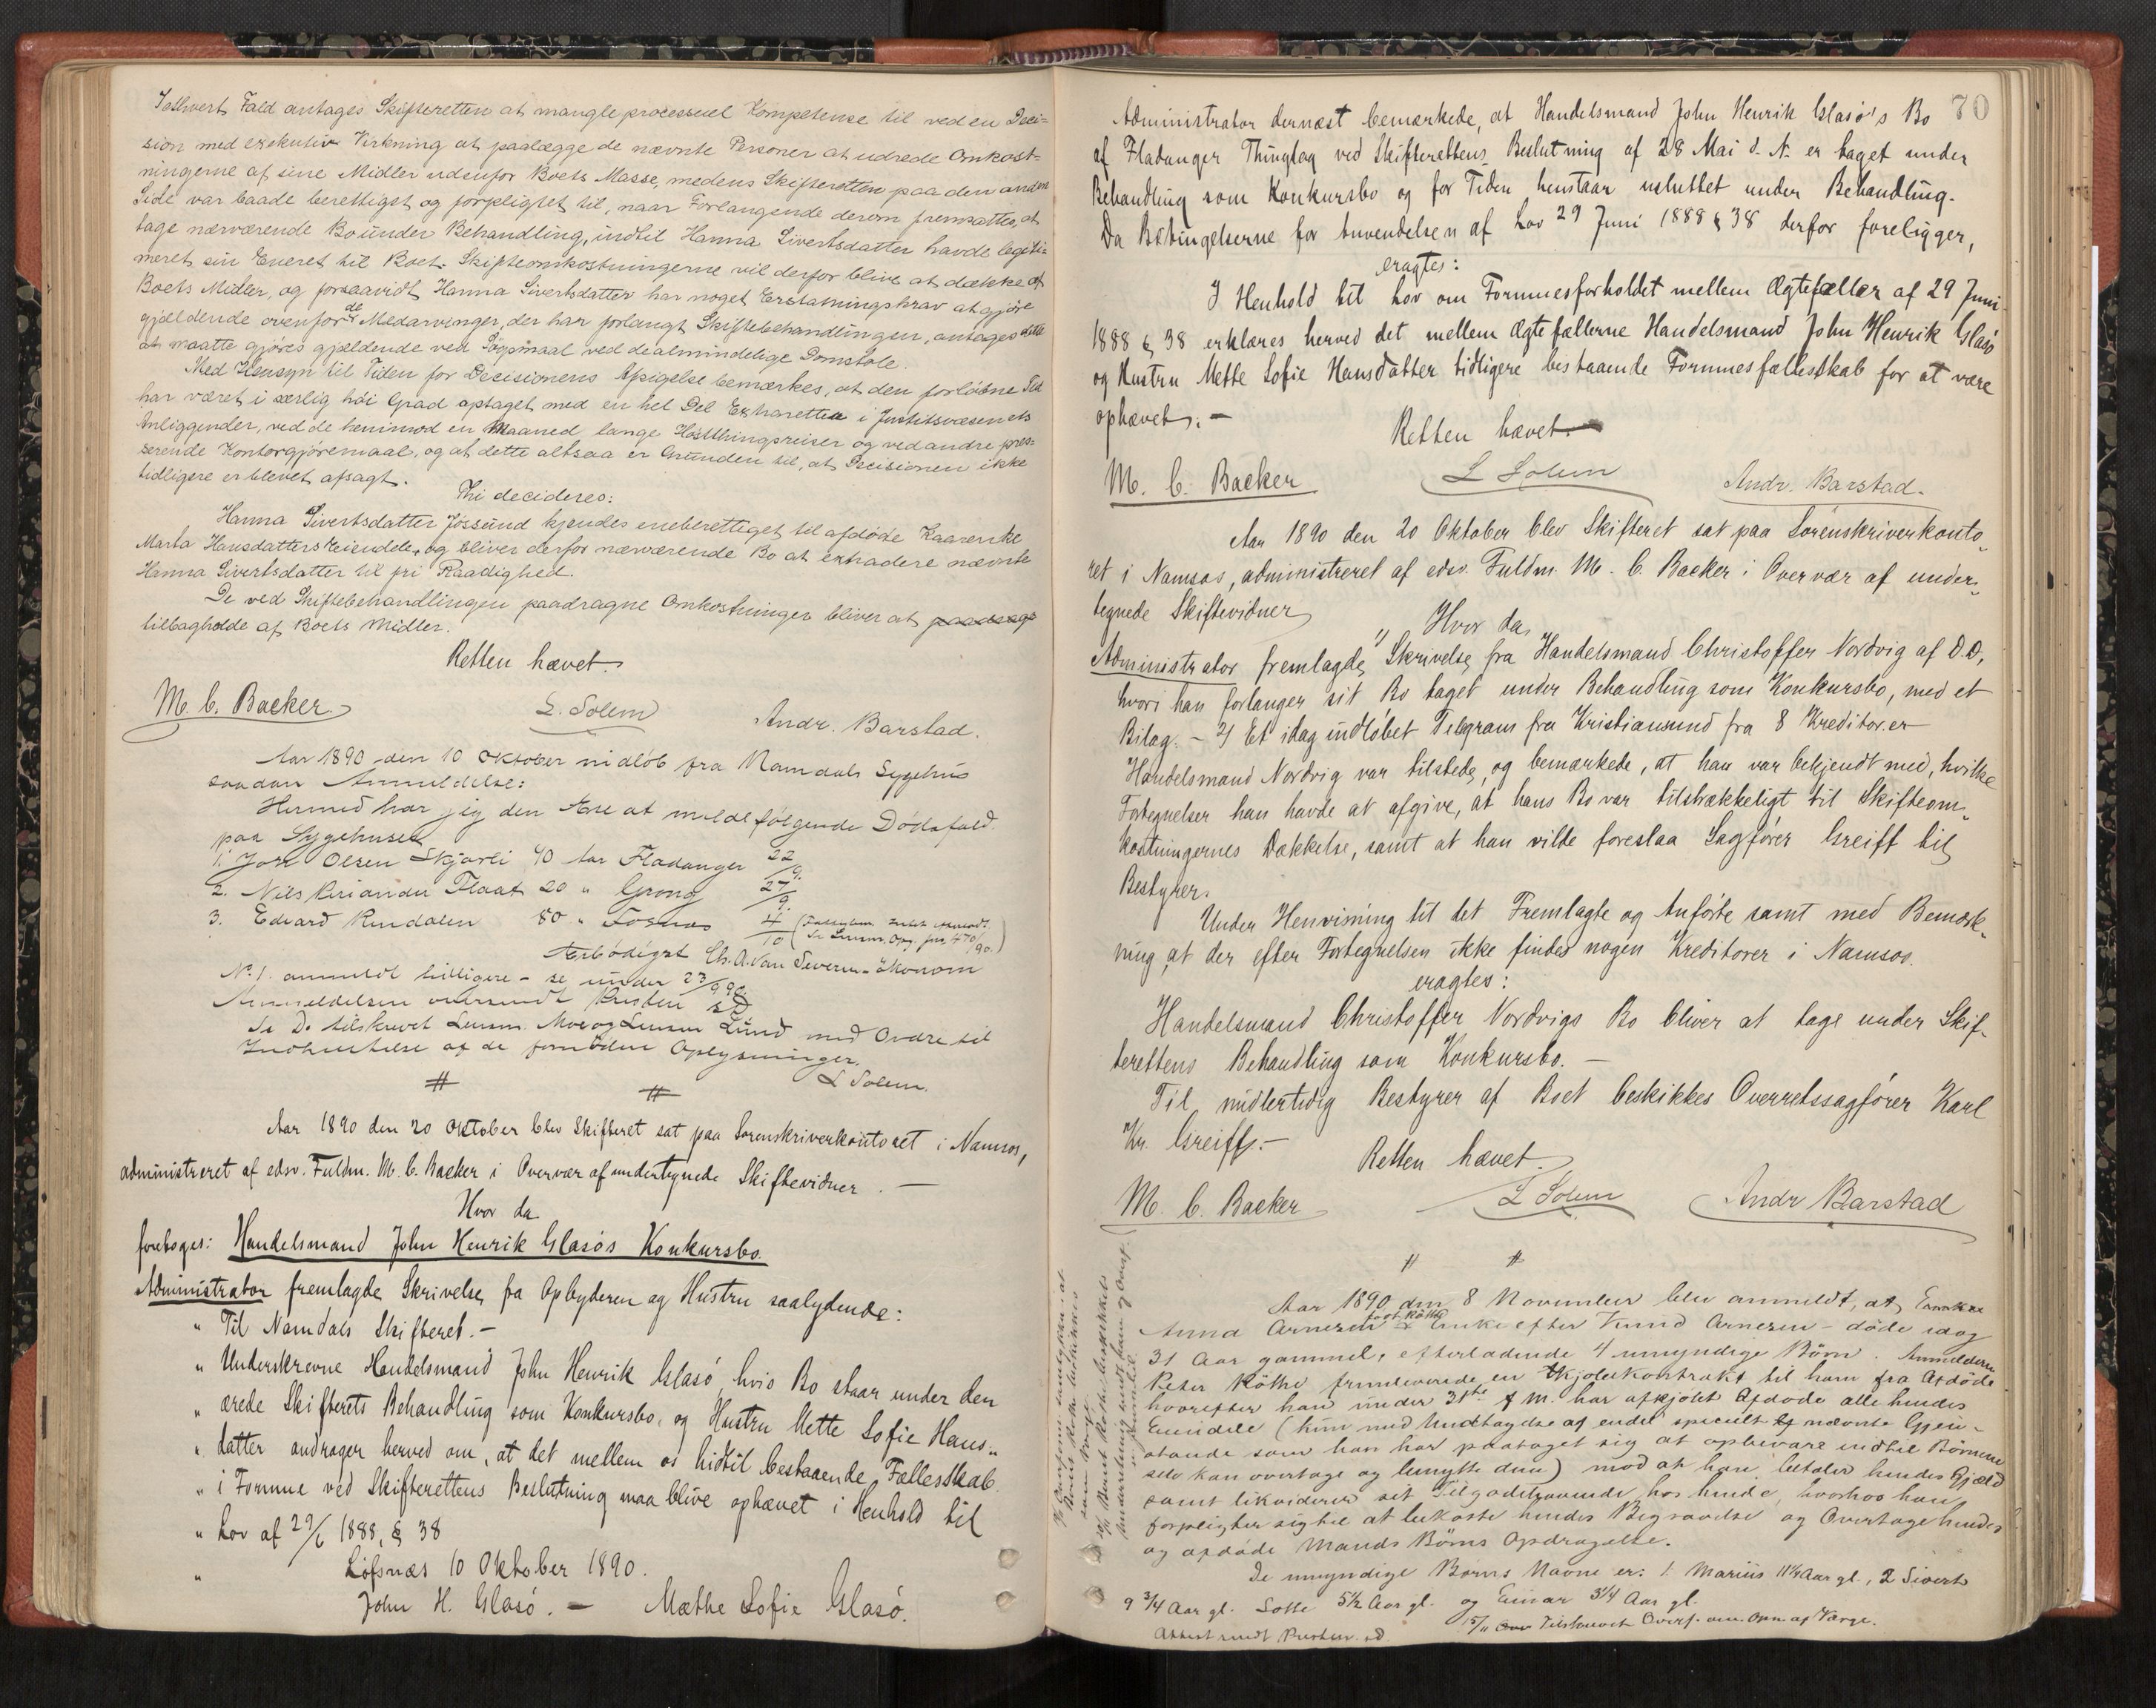 Iethvert Fald antages Skifteretten at mangle processuel Kompetense til ved en Deci-
sion med exekutiv Virkning at paalægge de nævnte Personer at udrede Omkost-
ningerne af sine Midler udenfor Boets Masse, medens Skifteretten paa den anden
Side var baade berettiget og forpligtet til, naar Forlangende derom fremsattes, at
tage nærværende Bo under Behandling, indtil Hanna Sivertsdatter havde legiti-
meret sin Eneret til Boet. Skifteomkostningerne vil derfor blive at dække af
Boets Midler, og forsaavidt Hanna Sivertsdatter har noget Erstatningskrav at gjøre
gjældende ovenfor de Medarvinger, der har forlangt Skiftebehandlingen, antages dette
at maatte gjøres gjældende ved Søgsmaal ved de almindelige Domstole.
Med Hensyn til Tiden for Decisionens Afsigelse bemærkes, at den forløbne Tid
har været i særlig høi Grad optaget med en hel Del Extraretter i Justitsvæsenets
Anliggender, ved de henimod en Maaned lange Høstthingsreiser og ved andre pres-
serende Kontorgjøremaal, og at dette altsaa er Grunden til, at Decisionen ikke
tidligere er blevet afsagt.
Thi decideres:
Hanna Sivertsdatter Jøssund kjendes eneberettiget til afdøde Kaarenke
Marta Hansdatters Eiendele, og bliver derfor nærværende Bo at extradere nævnte
Hanna Sivertsdatter til fri Raadighed.
De ved Skiftebehandlingen paadragne Omkostninger bliver at paadrage
tilbageholde af Boets Midler.
Retten hævet.
M. C. Backer L. Solem Andr. Barstad.
Aar 1890 den 10 Oktober indløb fra Namdals Sygehus
saadan Anmeldelse:
Hermed har jeg den Ære at melde følgende Dødsfald
paa Sygehuset
1. Jon Olsen Skjærli 40 Aar Fladanger 22/9.
2. Nils Kriander Flaat 20 " Grong 27/9.
3. Edvard Rindalen 80 " Fosnes 4/10
Ærbødigst Ch. A. van Severen - økonom
No 1. anmeldt tidligere - se under 23/9 90.
Anmeldelsen oversendt Presten sD
Se D. tilskrevet Lensm. Moe og Lensm Lund med Ordre til
Indhentelse af de fornødne Oplysninger.
L Solem.
Aar 1890 den 20 Oktober blev Skifteret sat paa Sorenskriverkontoret i Namsos,
administreret af edsv. Fuldm. M. C. Backer i Overvær af undertegnede Skiftevidner. —
Hvor da
foretoges: Handelsmand John Henrik Glasøs Konkursbo.
Administrator fremlagde Skrivelse fra Opbyderen og Hustru saalydende:
" Til Namdals Skifteret. -
" Underskrevne Handelsmand John Henrik Glasø, hvis Bo staar under den
" ærede Skifterets Behandling som Konkursbo, og Hustru Mette Sofie Hans-
" datter andrager herved om, at det mellem os hidtil bestaaende Fællesskab
" i Formue ved Skifterettens Beslutning maa blive ophævet i Henhold til
" Lov af 29/6 1888, § 38
" Løfsnæs 10 Oktober 1890.
John H. Glasø. — Mæthe Sofie Glasø.
70
Administrator dernæst bemærkede, at Handelsmand John Henrik Glasø's Bo
af Fladanger Thinglag ved Skifterettens Beslutning af 28 Mai d. A. er taget under
Behandling som Konkursbo og for Tiden henstaar usluttet under Behandling.
Da Betingelserne for Anvendelsen af Lov 29 Juni 1888 § 38 derfor foreligger,
eragtes:
I Henhold til Lov om Formuesforholdet mellem Ægtefæller af 29 Juni
1888 § 38 erklæres herved det mellem Ægtefællerne Handelsmand John Henrik Glasø
og Hustru Mette Sofie Hansdatter tidligere bestaaende Formuesfællesskab for at være
ophævet. —
Retten hævet.
M. C. Backer L Solem Andr. Barstad.
Aar 1890 den 20 Oktober blev Skifteret sat paa Sorenskriverkonto-
ret i Namsos, administreret af edsv. Fuldm. M. C. Backer i Overvær af under-
tegnede Skiftevidner
Hvor da
Administrator fremlagde 1) Skrivelse fra Handelsmand Christoffer Nordvig af D.D.,
hvori han forlanger sit Bo taget under Behandling som Konkursbo, med et
Bilag. - 2) Et idag indløbet Telegram fra Kristiansund fra 8 Kreditorer
Handelsmand Nordvig var tilstede, og bemærkede, at han var bekjendt med, hvilke
Fortegnelser han havde at afgive, at hans Bo var tilstrækkeligt til Skifteom-
kostningernes Dækkelse, samt at han vilde foreslaa Sagfører Greiff til
Bestyrer.
Under Henvisning til det Fremlagte og Anførte samt med Bemærk-
ning, at der efter Fortegnelsen ikke findes nogen Kreditorer i Namsos.
eragtes:
Handelsmand Christoffer Nordvigs Bo bliver at tage under Skif-
terettens Behandling som Konkursbo. —
Til midlertidig Bestyrer af Boet beskikkes Overretssagfører Karl
Kr. Greiff. —
Retten hævet.
M. C. Backer L Solem Andr Barstad
Aar 1890 den 8 November blev anmeldt, at Enke
Anna Arnesen født Køthe Enke efter Knud Arnesen - døde idag
31 Aar gammel, efterladende 4 umyndige Børn. Anmelderen
Peter Køthe fremleverede en Skjødekontrakt til ham fra Afdøde
hvorefter han under 31te f. M. har afkjøbt Afdøde alle hendes
Eiendele (kun med Undtagelse af endel specielt nævnte Gjen-
stande som han har paataget sig at opbevare indtil Børnene
selv kan overtage og benytte dem) mod at han betaler hendes Gjæld
samt likviderer sit Tilgodehavende hos hende, hvorhos han
forpligter sig til at bekoste hendes Begravelse og Overtage hendes
og afdøde Mands Børns Opdragelse.
De umyndige Børns Navne er: 1. Marius 11 1/4 Aar gl., 2 Sivert
9 3/4 Aar gl. Lotte 5 1/2 Aar gl. og Einar 3 1/4 Aar gl.
Attest sendt Presten sD 15/11 Tilskrevet Overf. om Opn. af Værge.